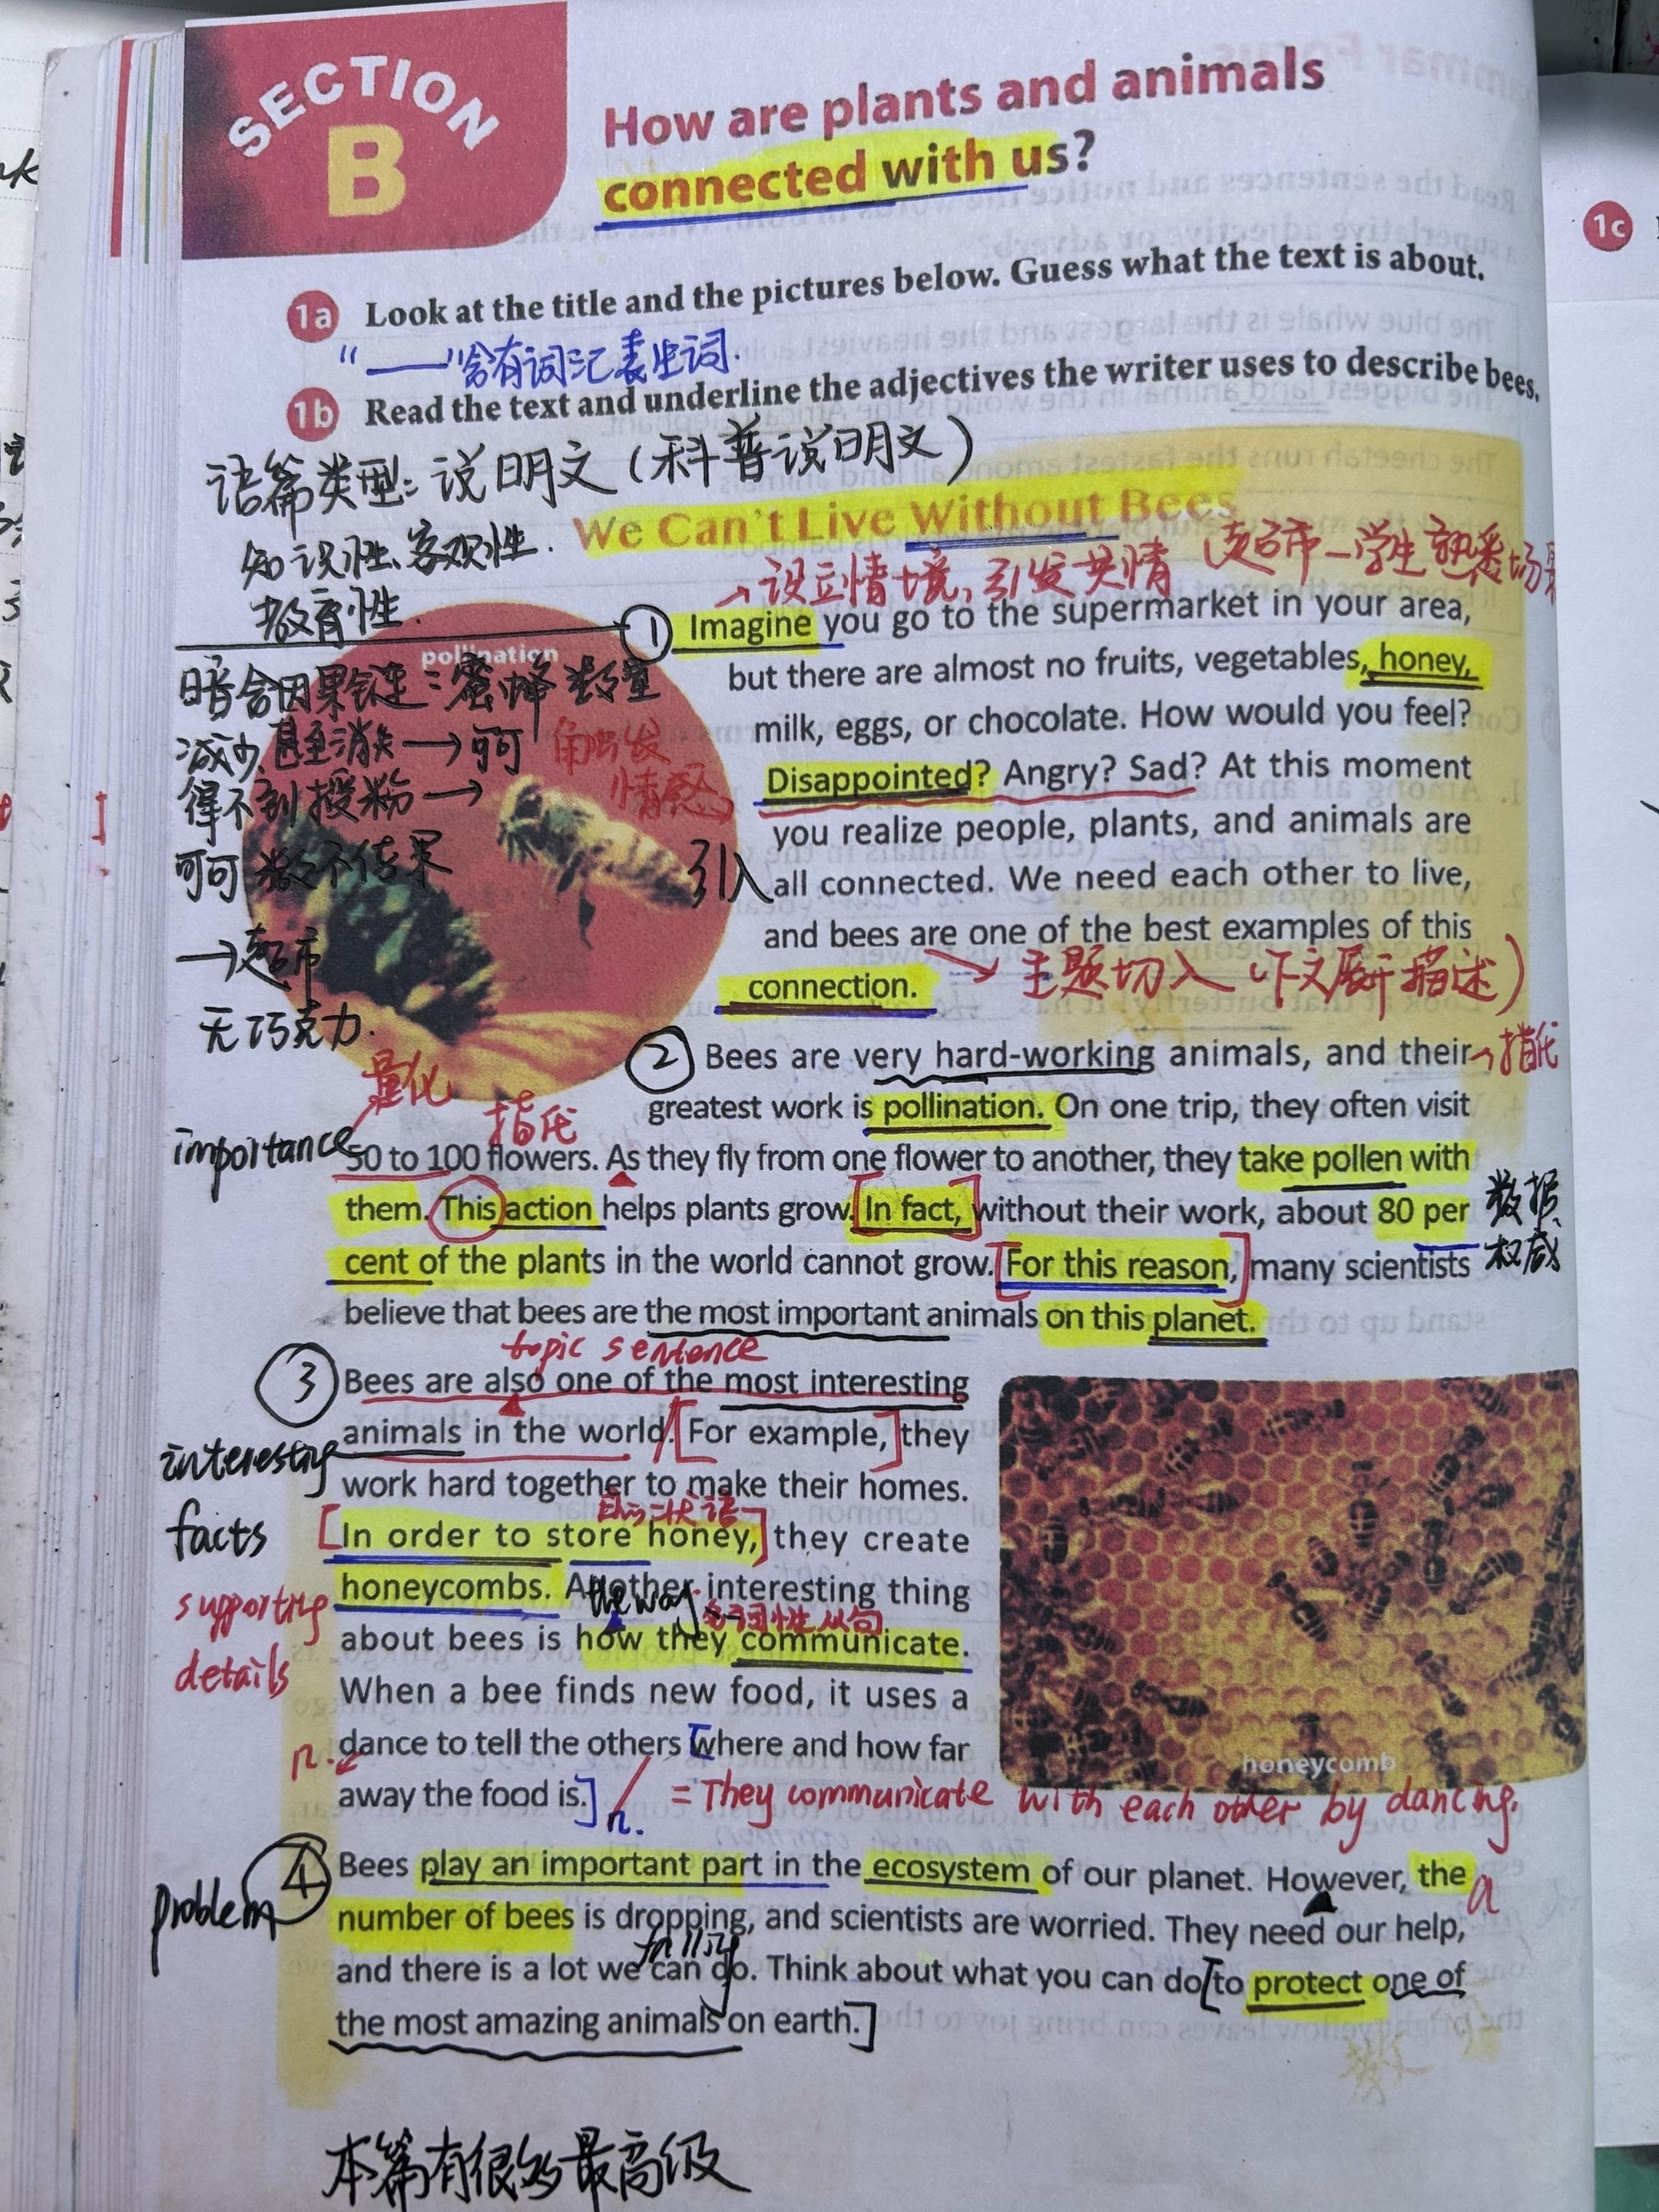 SECTION
B
How are plants and animals
connected with us?
1a Look at the title and the pictures below. Guess what the text is about.
“——”含有词汇表生词.
1b Read the text and underline the adjectives the writer uses to describe bees.
语篇类型: 说明文 (科普说明文)
We Can't Live Without Bees
知识性、客观性.
教育性.
→设立情境, 引发共情 (超市—学生熟悉场景
pollination
① Imagine you go to the supermarket in your area,
but there are almost no fruits, vegetables, honey,
milk, eggs, or chocolate. How would you feel?
Disappointed? Angry? Sad? At this moment
you realize people, plants, and animals are
all connected. We need each other to live,
and bees are one of the best examples of this
connection.
暗含因果链: 蜜蜂数量
减少, 甚至消失→可可
得不到授粉→
可可数不结果
→超市
无巧克力.
触发
情感
引入
→主题切入 (下文展开描述)
② Bees are very hard-working animals, and their
→指代
greatest work is pollination. On one trip, they often visit
量化
指代
importance
50 to 100 flowers. As they fly from one flower to another, they take pollen with
them. This action helps plants grow. In fact, without their work, about 80 per
数据,
cent of the plants in the world cannot grow. For this reason, many scientists
权威
believe that bees are the most important animals on this planet.
topic sentence
③ Bees are also one of the most interesting
animals in the world. For example, they
work hard together to make their homes.
目的状语
In order to store honey, they create
honeycombs. Another interesting thing
the way
名词性从句
about bees is how they communicate.
When a bee finds new food, it uses a
dance to tell the others where and how far
away the food is.
interesting
facts
supporting
details
n.
n.
= They communicate with each other by dancing.
honeycomb
problem
④ Bees play an important part in the ecosystem of our planet. However, the
a
number of bees is dropping, and scientists are worried. They need our help,
falling
and there is a lot we can do. Think about what you can do to protect one of
the most amazing animals on earth.
本篇有很多最高级
1c